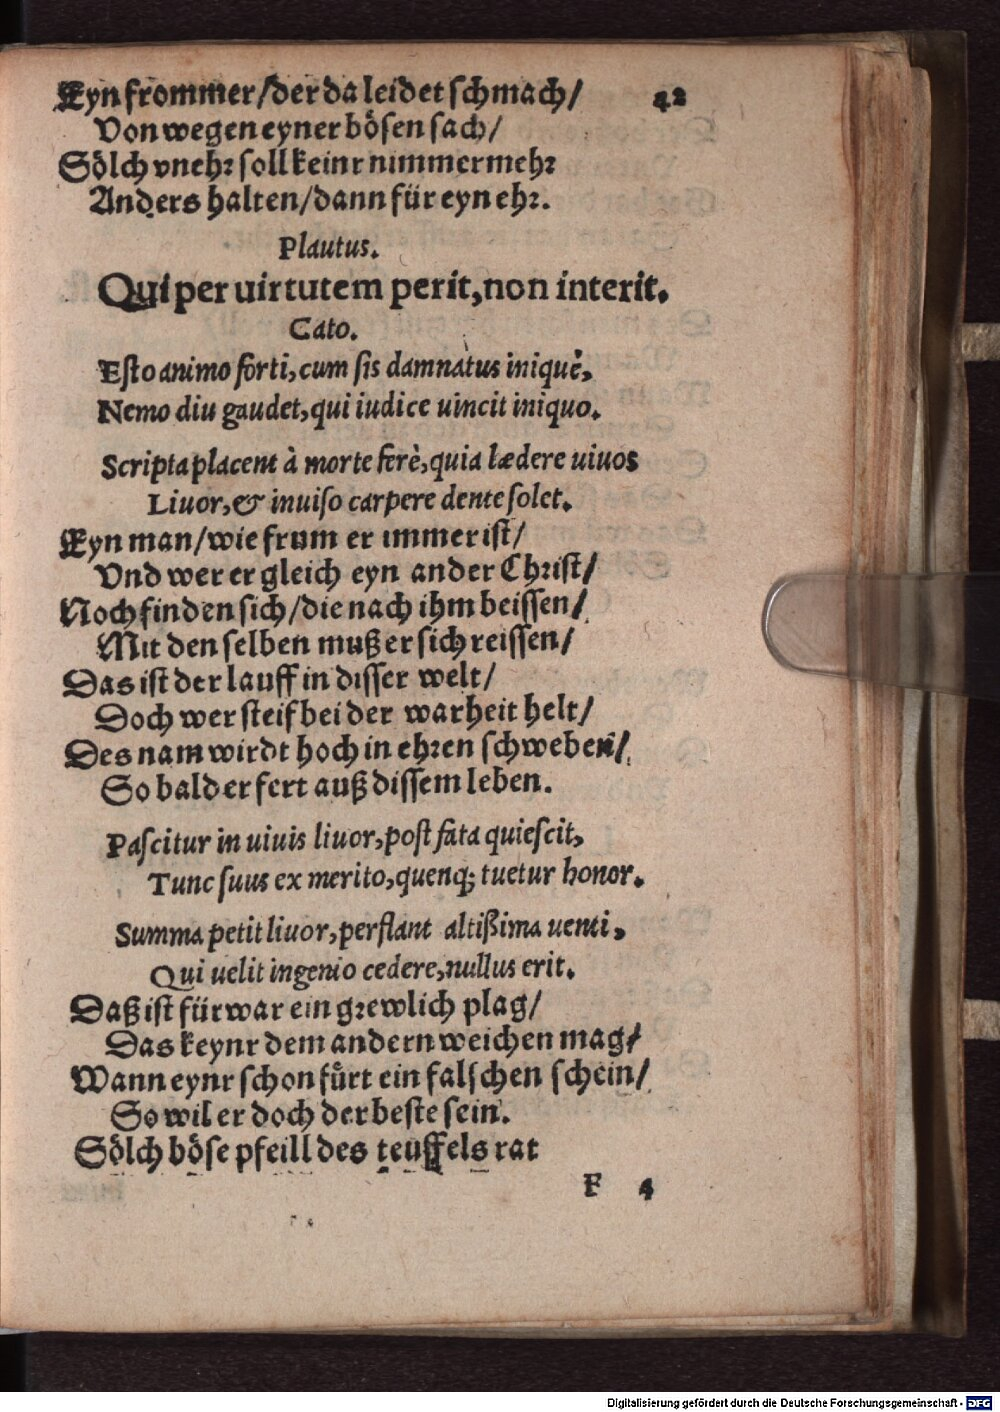 Eyn frommer/der da leidet ſchmach/ 42
Von wegen eyner böſen ſach/
Sölch vnehꝛ ſoll keinr nimmermehꝛ
Anders halten/dann für eyn ehꝛ.
Plautus.
Qui per uirtutem perit,non interit.
Cato.
Eſto animo forti,cum ſis damnatus iniquè,
Nemo diu gaudet,qui iudice uincit iniquo.
Scripta placent à morte ferè,quia lædere uiuos
Liuor,& inuiſo carpere dente ſolet.
Eyn man/wie frum er immer iſt/
Vnd wer er gleich eyn ander Chꝛiſt/
Noch finden ſich/die nach ihm beiſſen/
Mit den ſelben muß er ſich reiſſen/
Das iſt der lauff in diſſer welt/
Doch wer ſteif bei der warheit helt/
Des nam wirdt hoch in ehꝛen ſchweben/
So bald er fert auß diſſem leben.
Paſcitur in uiuis liuor,poſt fata quieſcit,
Tunc ſuus ex merito,quenq; tuetur honor.
Summa petit liuor,perflant altißima uenti,
Qui uelit ingenio cedere,nullus erit.
Daß iſt fürwar ein gꝛewlich plag/
Das keynr dem andern weichen mag/
Wann eynr ſchon fürt ein falſchen ſchein/
So wil er doch der beſte ſein.
Sölch böſe pfeill des teuffels rat
F 4
Digitalisierung gefördert durch die Deutsche Forschungsgemeinschaft - DFG